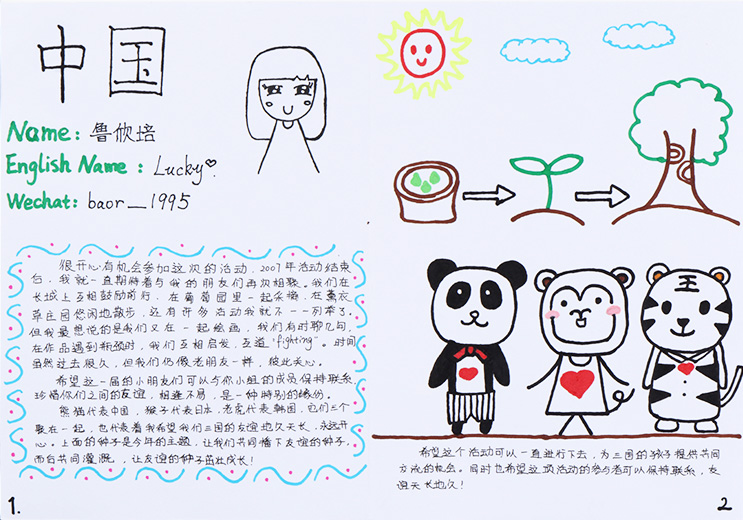 中国
Name: 鲁欣培
English Name: Lucky
Wechat: baor_1995
很开心有机会参加这次的活动, 2007年活动结束
后, 我就一直期待着与我的朋友们再次相聚。我们在
长城上互相鼓励前行, 在葡萄园里一起采摘, 在薰衣
草庄园悠闲地散步, 还有许多活动我就不一一列举了。
但我最想说的是我们又在一起绘画, 我们有时聊几句,
在作品遇到瓶颈时, 我们互相启发, 互道"fighting"。时间
虽然过去很久, 但我们仍像老朋友一样, 彼此关心。
希望这一届的小朋友们可以与你小组的成员保持联系,
珍惜你们之间的友谊, 相逢不易, 是一种特别的缘份。
熊猫代表中国, 猴子代表日本, 老虎代表韩国, 它们三个
聚在一起, 也代表着我希望我们三国的友谊地久天长, 永远开
心。上面的种子是今年的主题, 让我们共同播下友谊的种子,
而后共同灌溉, 让友谊的种子茁壮成长!
1.
王
希望这个活动可以一直进行下去, 为三国的孩子提供共同
交流的机会。同时也希望这项活动的参与者可以保持联系, 友
谊天长地久!
2